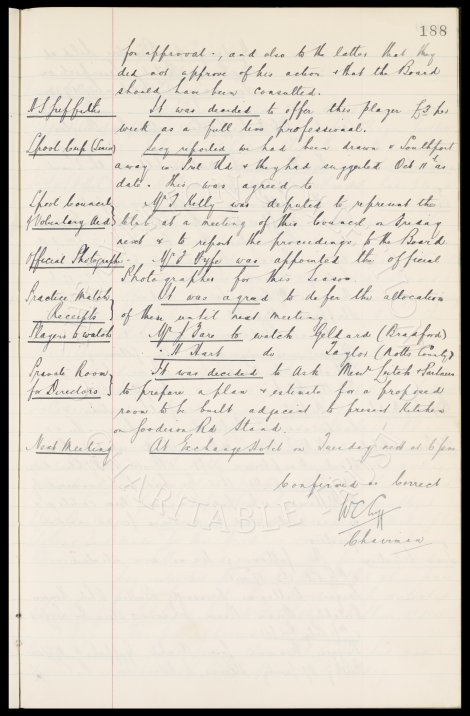 188
for approval -, and also to the latter that they
did not approve of his action & that the Board
should have been consulted.
H S Griffiths It was decided to offer this player £3 per
week as a full time professional.
Lpool Cup (Senior) Secy reported we had been drawn v Southport
away in 3rd Rd & they had suggested Oct 11th as
date. This was agreed to
Lpool Council Mr Kelly was deputed to represent the
& Voluntary Aid Club at a meeting of this Council on Friday
next & to report the proceedings to the Board
Official Photographr. Mr Fyfe was appointed the official
Photographer for this season
Practice Match It was agreed to defer the allocation
Receipts of these until next meeting.
Players to watch Mr to watch Geldard (Bradford)
" H Hart do Taylor (Notts County)
Private Room It was decided to ask Messrs Leitch & Partners
for Directors to prepare a plan & estimate for a proposed
room to be built adjacent to present Kitchen
in Goodison Rd Stand.
Next Meeting At Exchange Hotel on Tuesday next at 6 pm
Confirmed as Correct
W C Cuff
Chairman
CHARITABLE